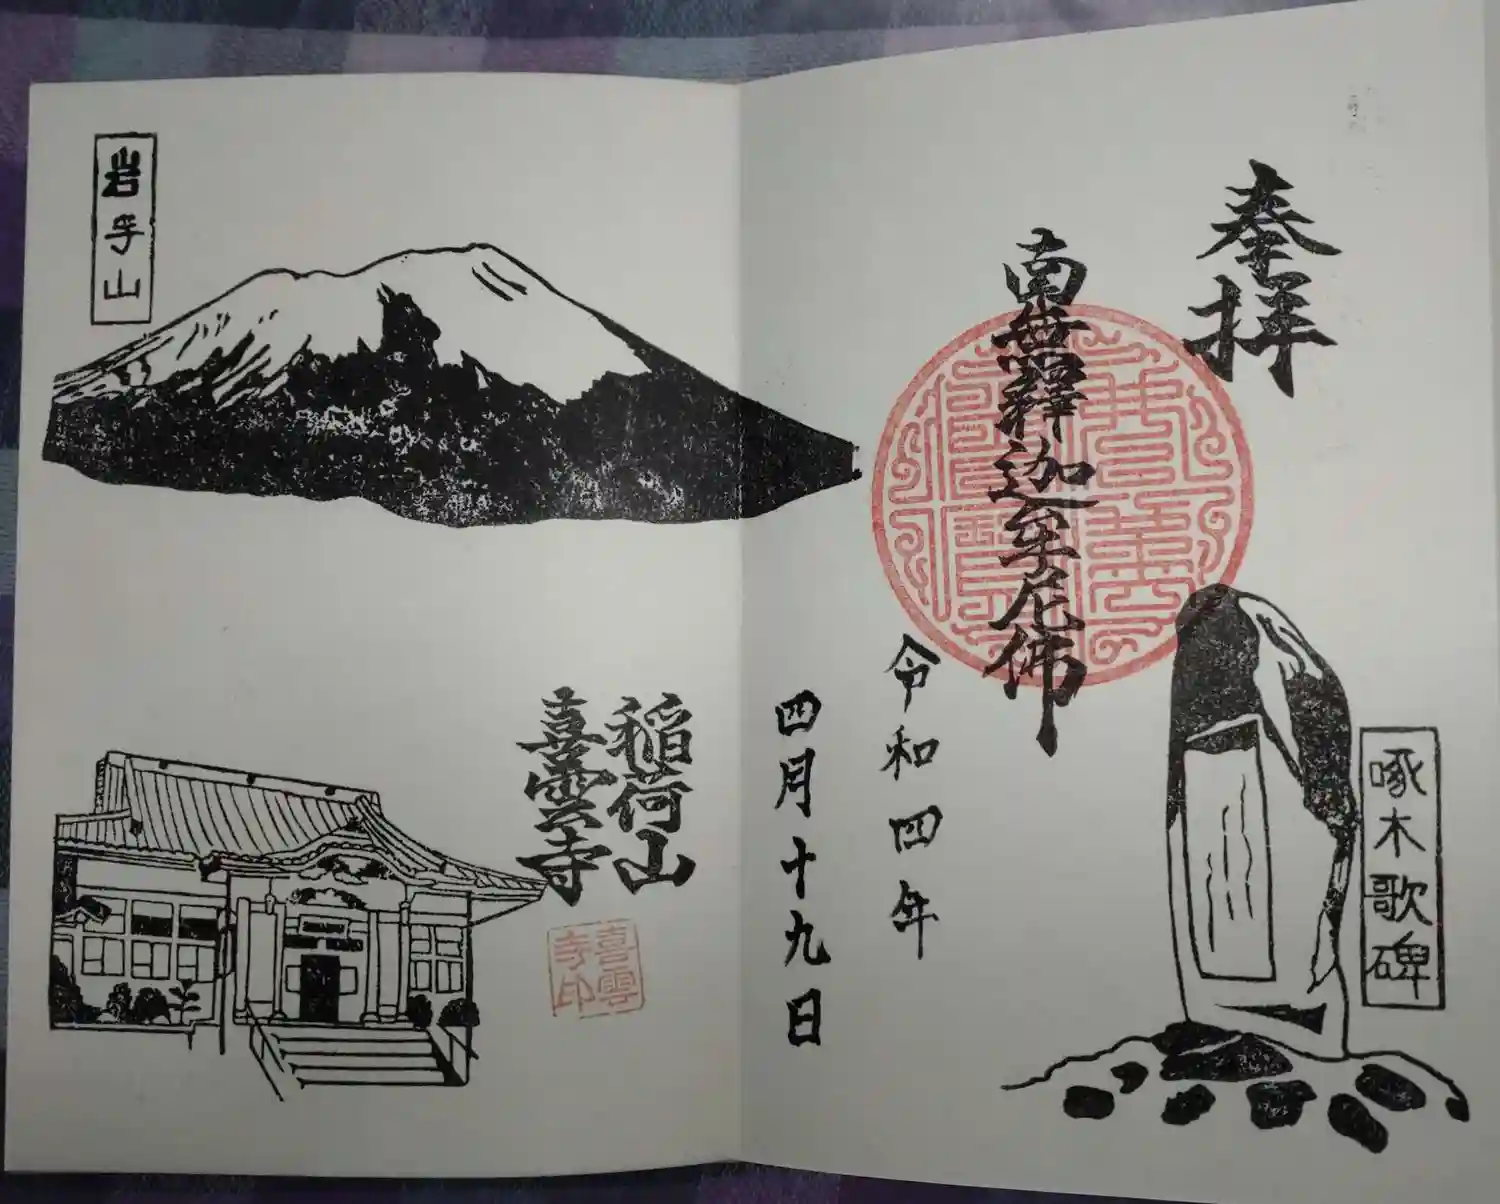 奉拝
南無釋迦牟尼佛
令和四年
四月十九日
啄木歌碑
岩手山
稲荷山
喜雲寺
喜雲
寺印